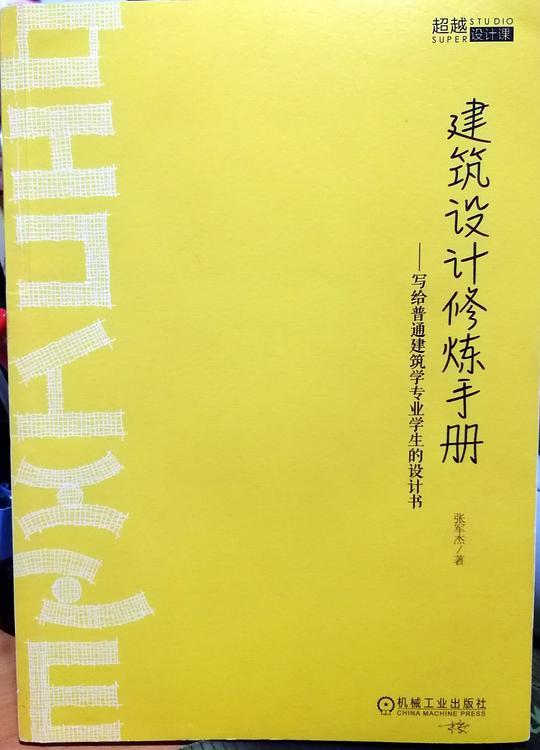 超越 STUDIO
SUPER 设计课
建筑设计修炼手册
——写给普通建筑学专业学生的设计书
张军杰/著
机械工业出版社
CHINA MACHINE PRESS